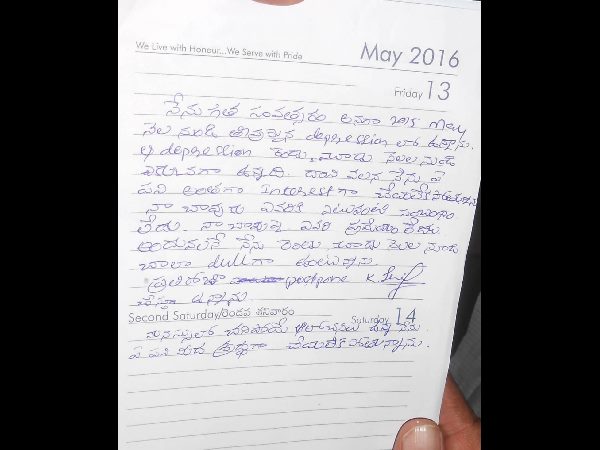 We Live with Honour...We Serve with Pride
May 2016
Friday 13
నేను గత సంవత్సరం అనగా 2015 May
నెల నుండి తీవ్రమైన depression లో ఉన్నాను.
ఆ depression రెండు, మూడు నెలల నుండి
ఎక్కువగా ఉన్నది. దాని వలన నేను ఏ
పని అంతగా Interest గా చేయలేకపోతున్నాను
నా చావుకు ఎవరికి ఎటువంటి సంబంధం
లేదు. నా చావుపై ఎవరి ప్రమేయం లేదు.
అందువలనే నేను రెండు మూడు నెలల నుండి
చాలా dull గా ఉంటున్నాను.
ప్రతిరోజూ postpone K.
చేస్తూ ఉన్నాను
Second Saturday/రెండవ శనివారం
Saturday 14
మనస్సులో చనిపోయే ఆలోచనలు ఉన్న నేను
ఏ పని మీద శ్రద్ధగా చేయలేకపోతున్నాను.